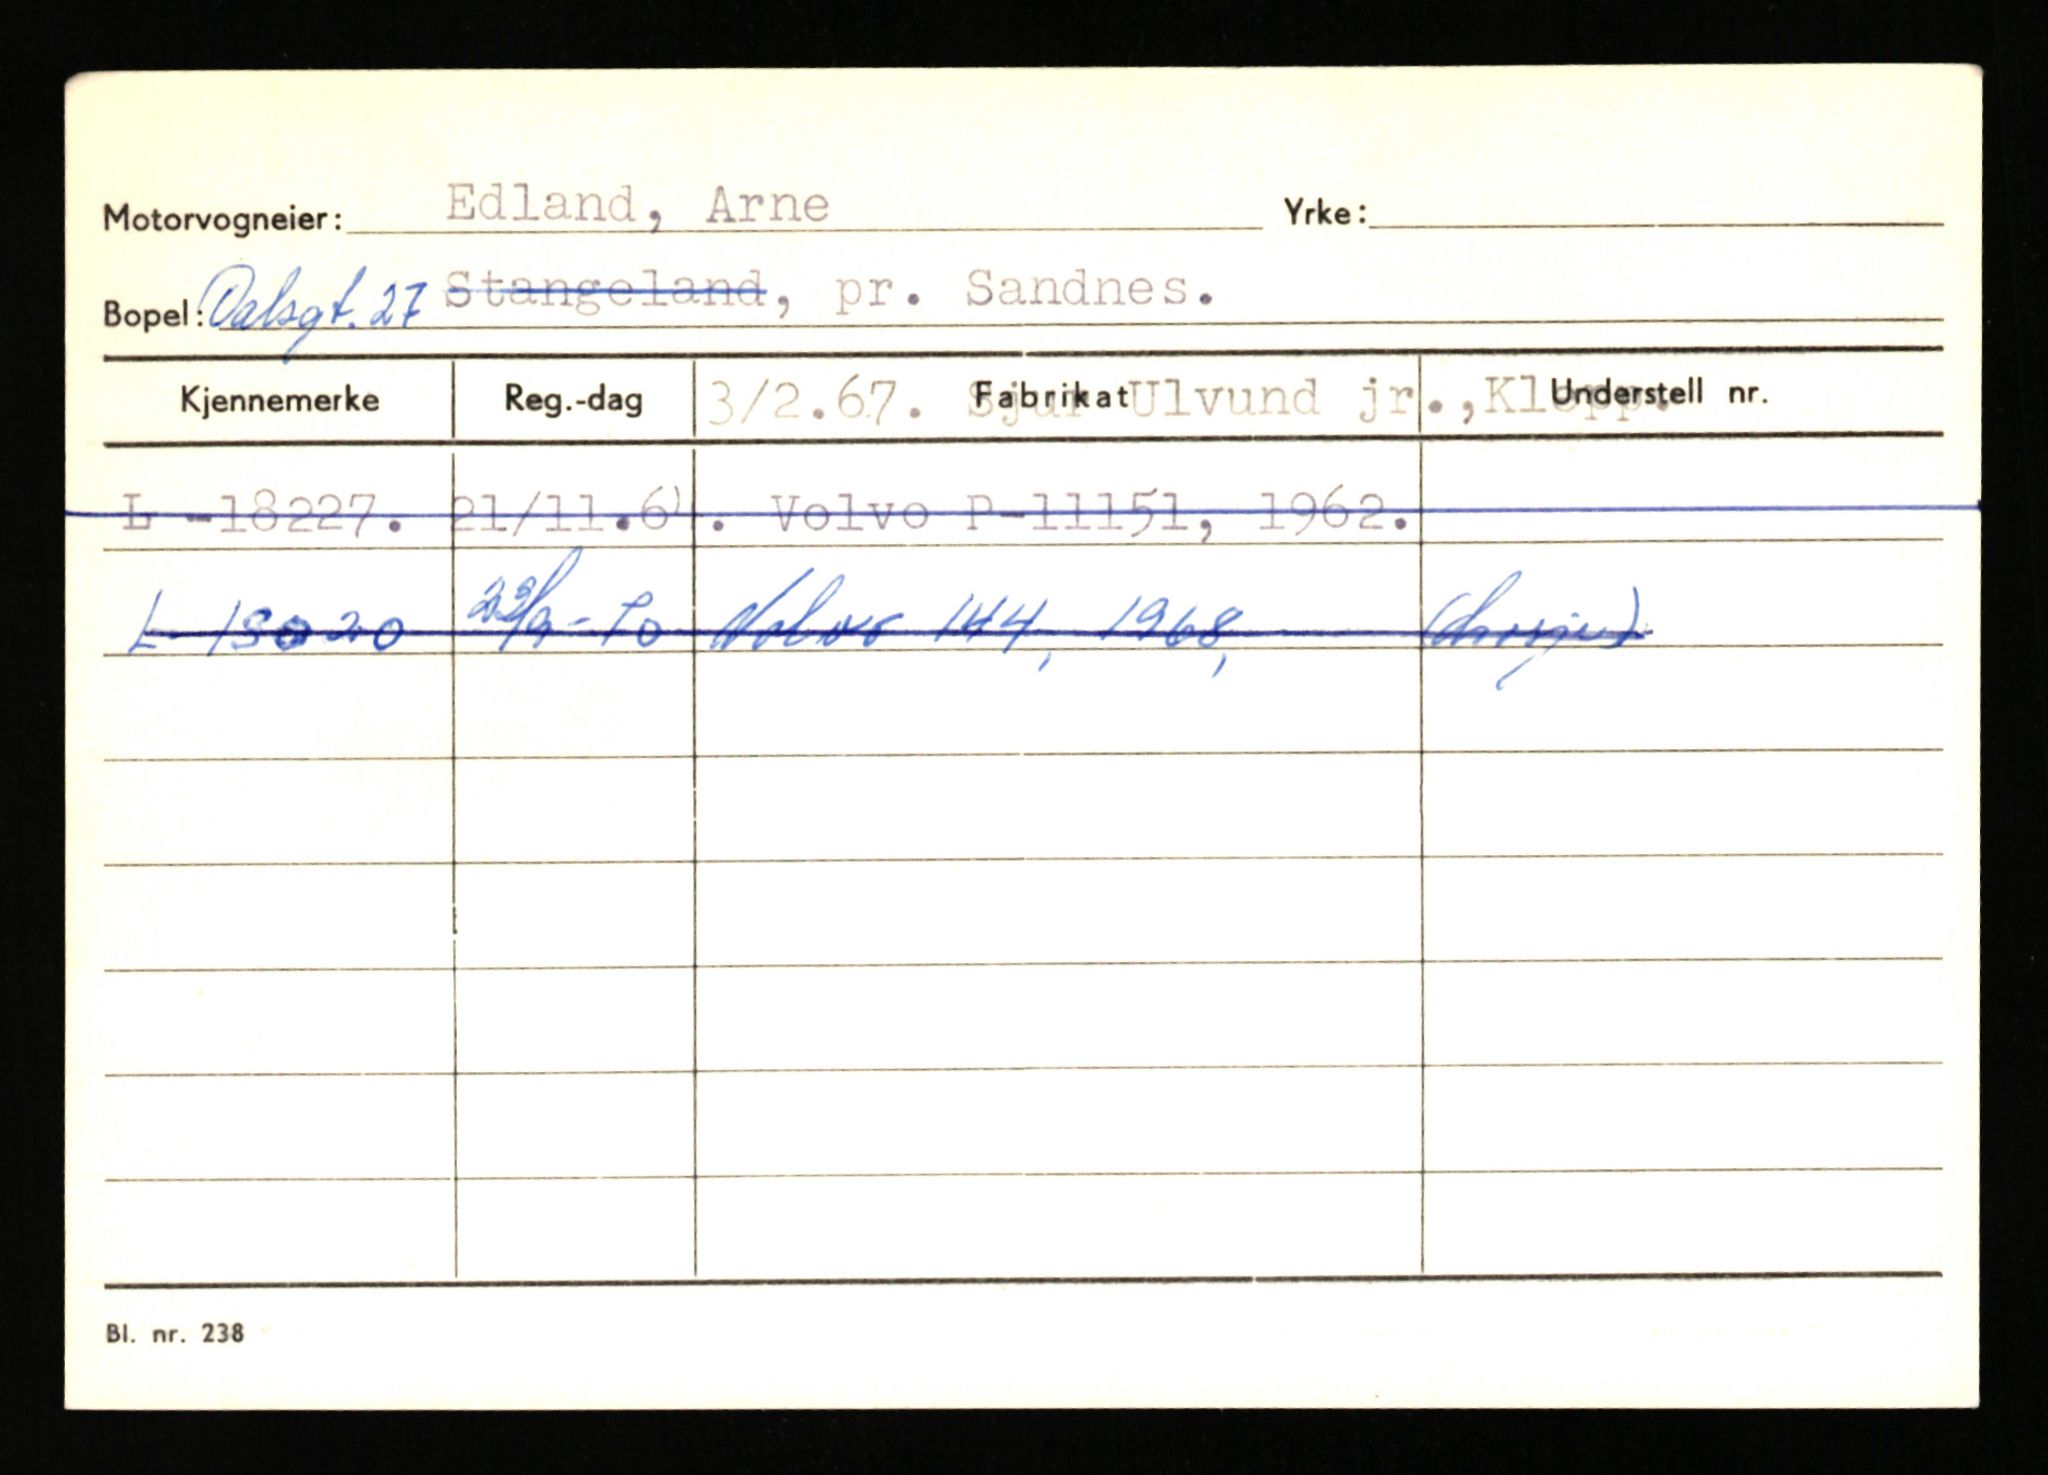 Motorvogneier: Edland, Arne Yrke:
Bopel: Dalsgt. 27 Stangeland, pr. Sandnes.
Kjennemerke Reg.-dag Fabrikat Understell nr.
3/2.67. Sjur Ulvund jr., Klepp.
L -18227. 21/11.61. Volvo P-11151, 1962.
L-15020 23/9-70 Volvo 144, 1968,
Bl. nr. 238